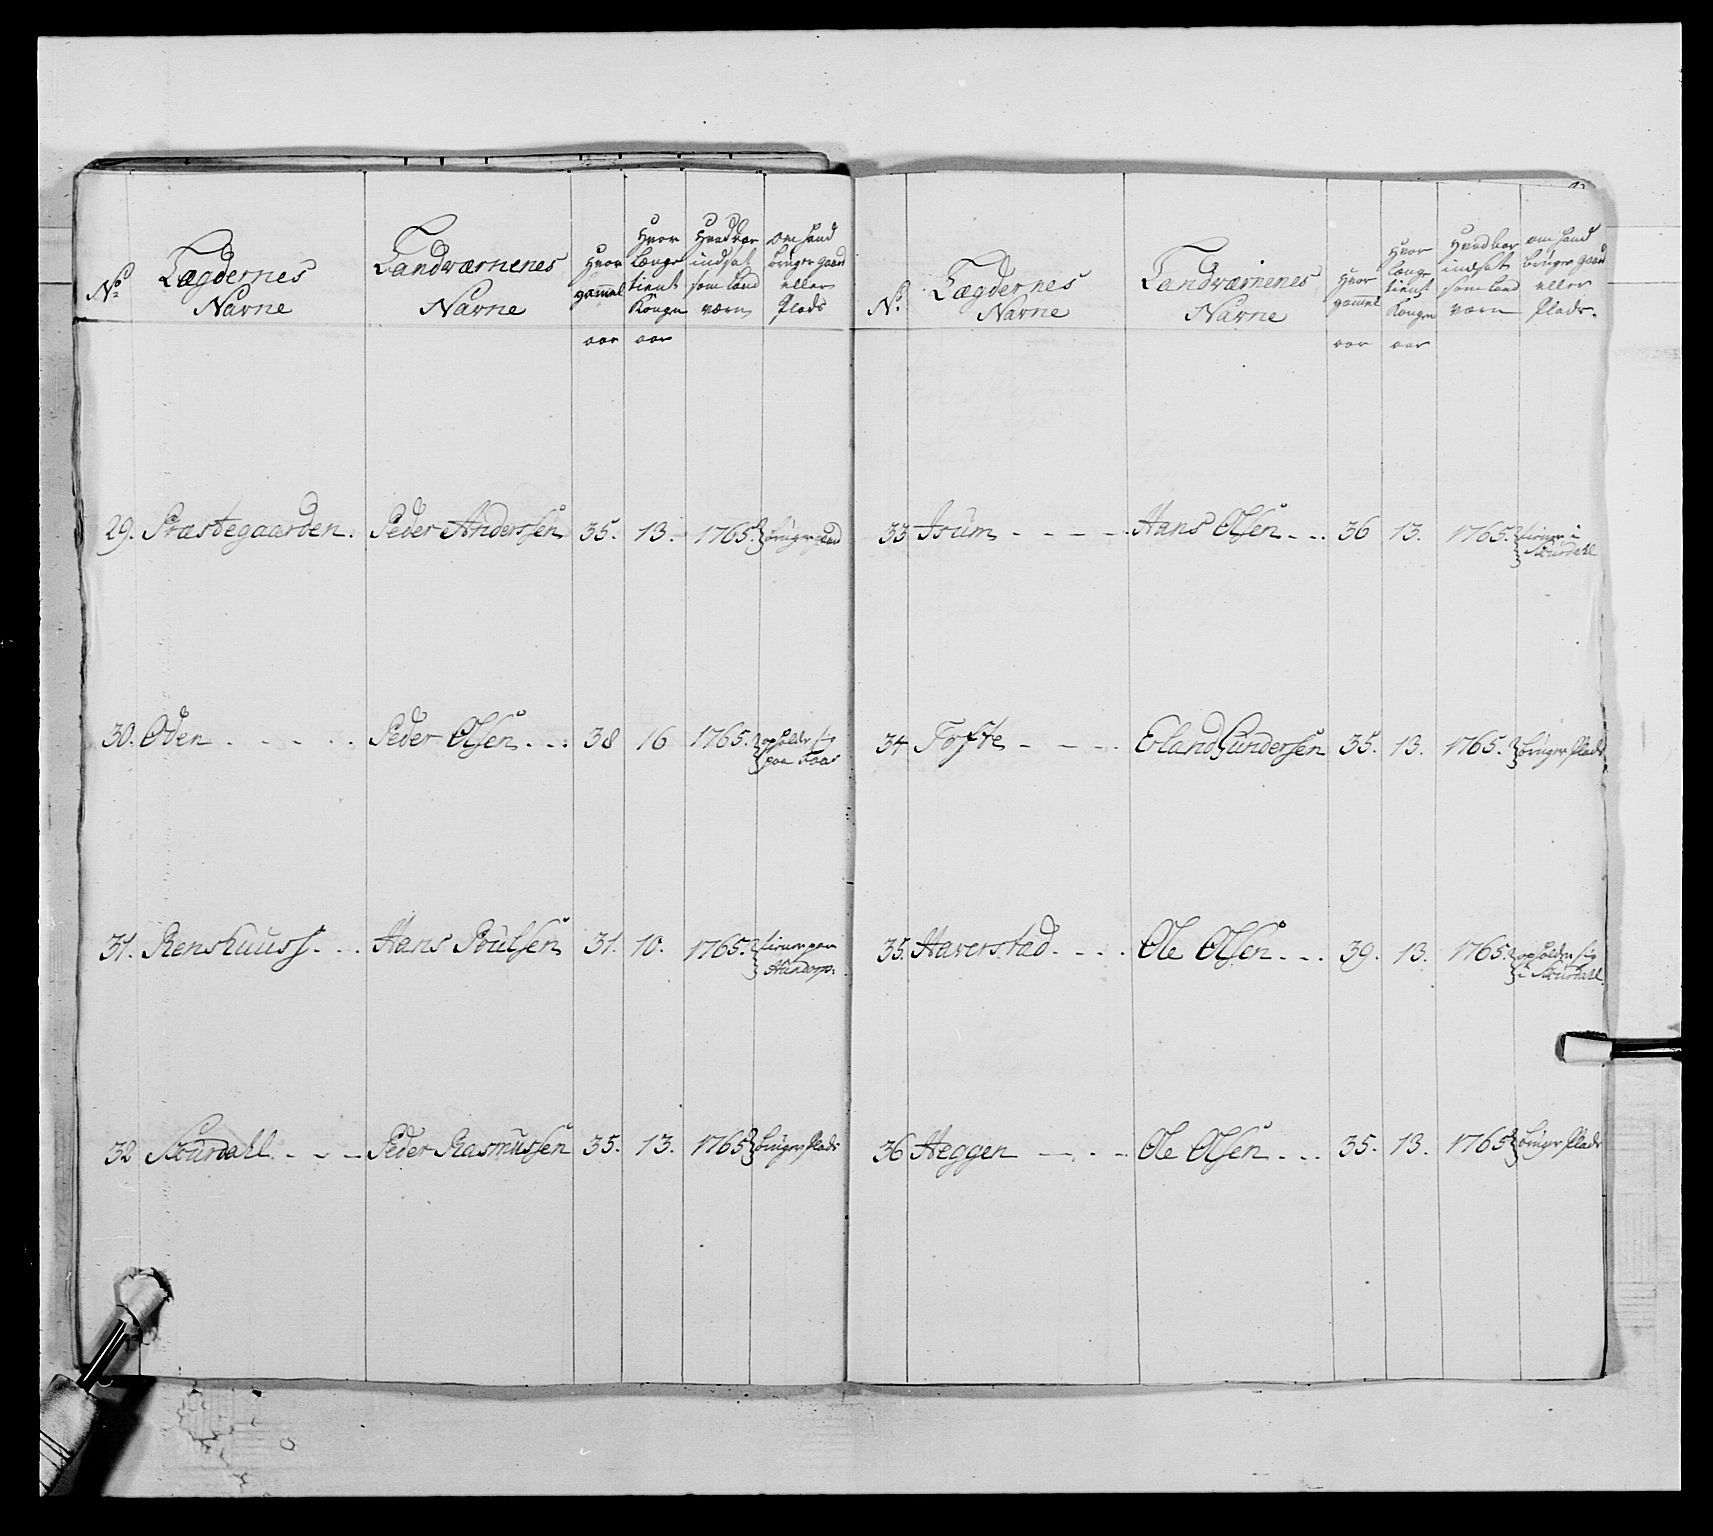 No
Lægdernes
Navne
Landværnenes
Navne
Hvor
gammel
aar
Hvor
længe
tient
Kongen
aar
Hvad aar
indsat
som Land
værn
om hand
bruger gaard
eller
Plads
29. Præstegaarden. Peder Andersen 35. 13. 1765. bruger gaard
30. Oden Peder Olsen 38 16 1765. opholder sig
paa
31. Renshuuss Hans Poulsen 31. 10. 1765. tiener paa
32 Sourdahl Peder Rasmussen 35. 13. 1765 bruger Plads
No.
Lægdernes
Navne
Landværnenes
Navne
Hvor
gammel
aar
Hvor
længe
tient
Kongen
aar
Hvad aar
indsat
som Land
værn
om hand
bruger gaard
eller
Plads.
33 Isum Hans Olsen 36 13. 1765. tiener i
Sourdahl
34 Tofte Erland Gundersen 35. 13. 1765. bruger Plads
35. Haverstad Ole Olsen 39. 13. 1765. opholder sig
i Sourdahl.
36 Heggen Ole Olsen 35. 13. 1765 bruger Plads